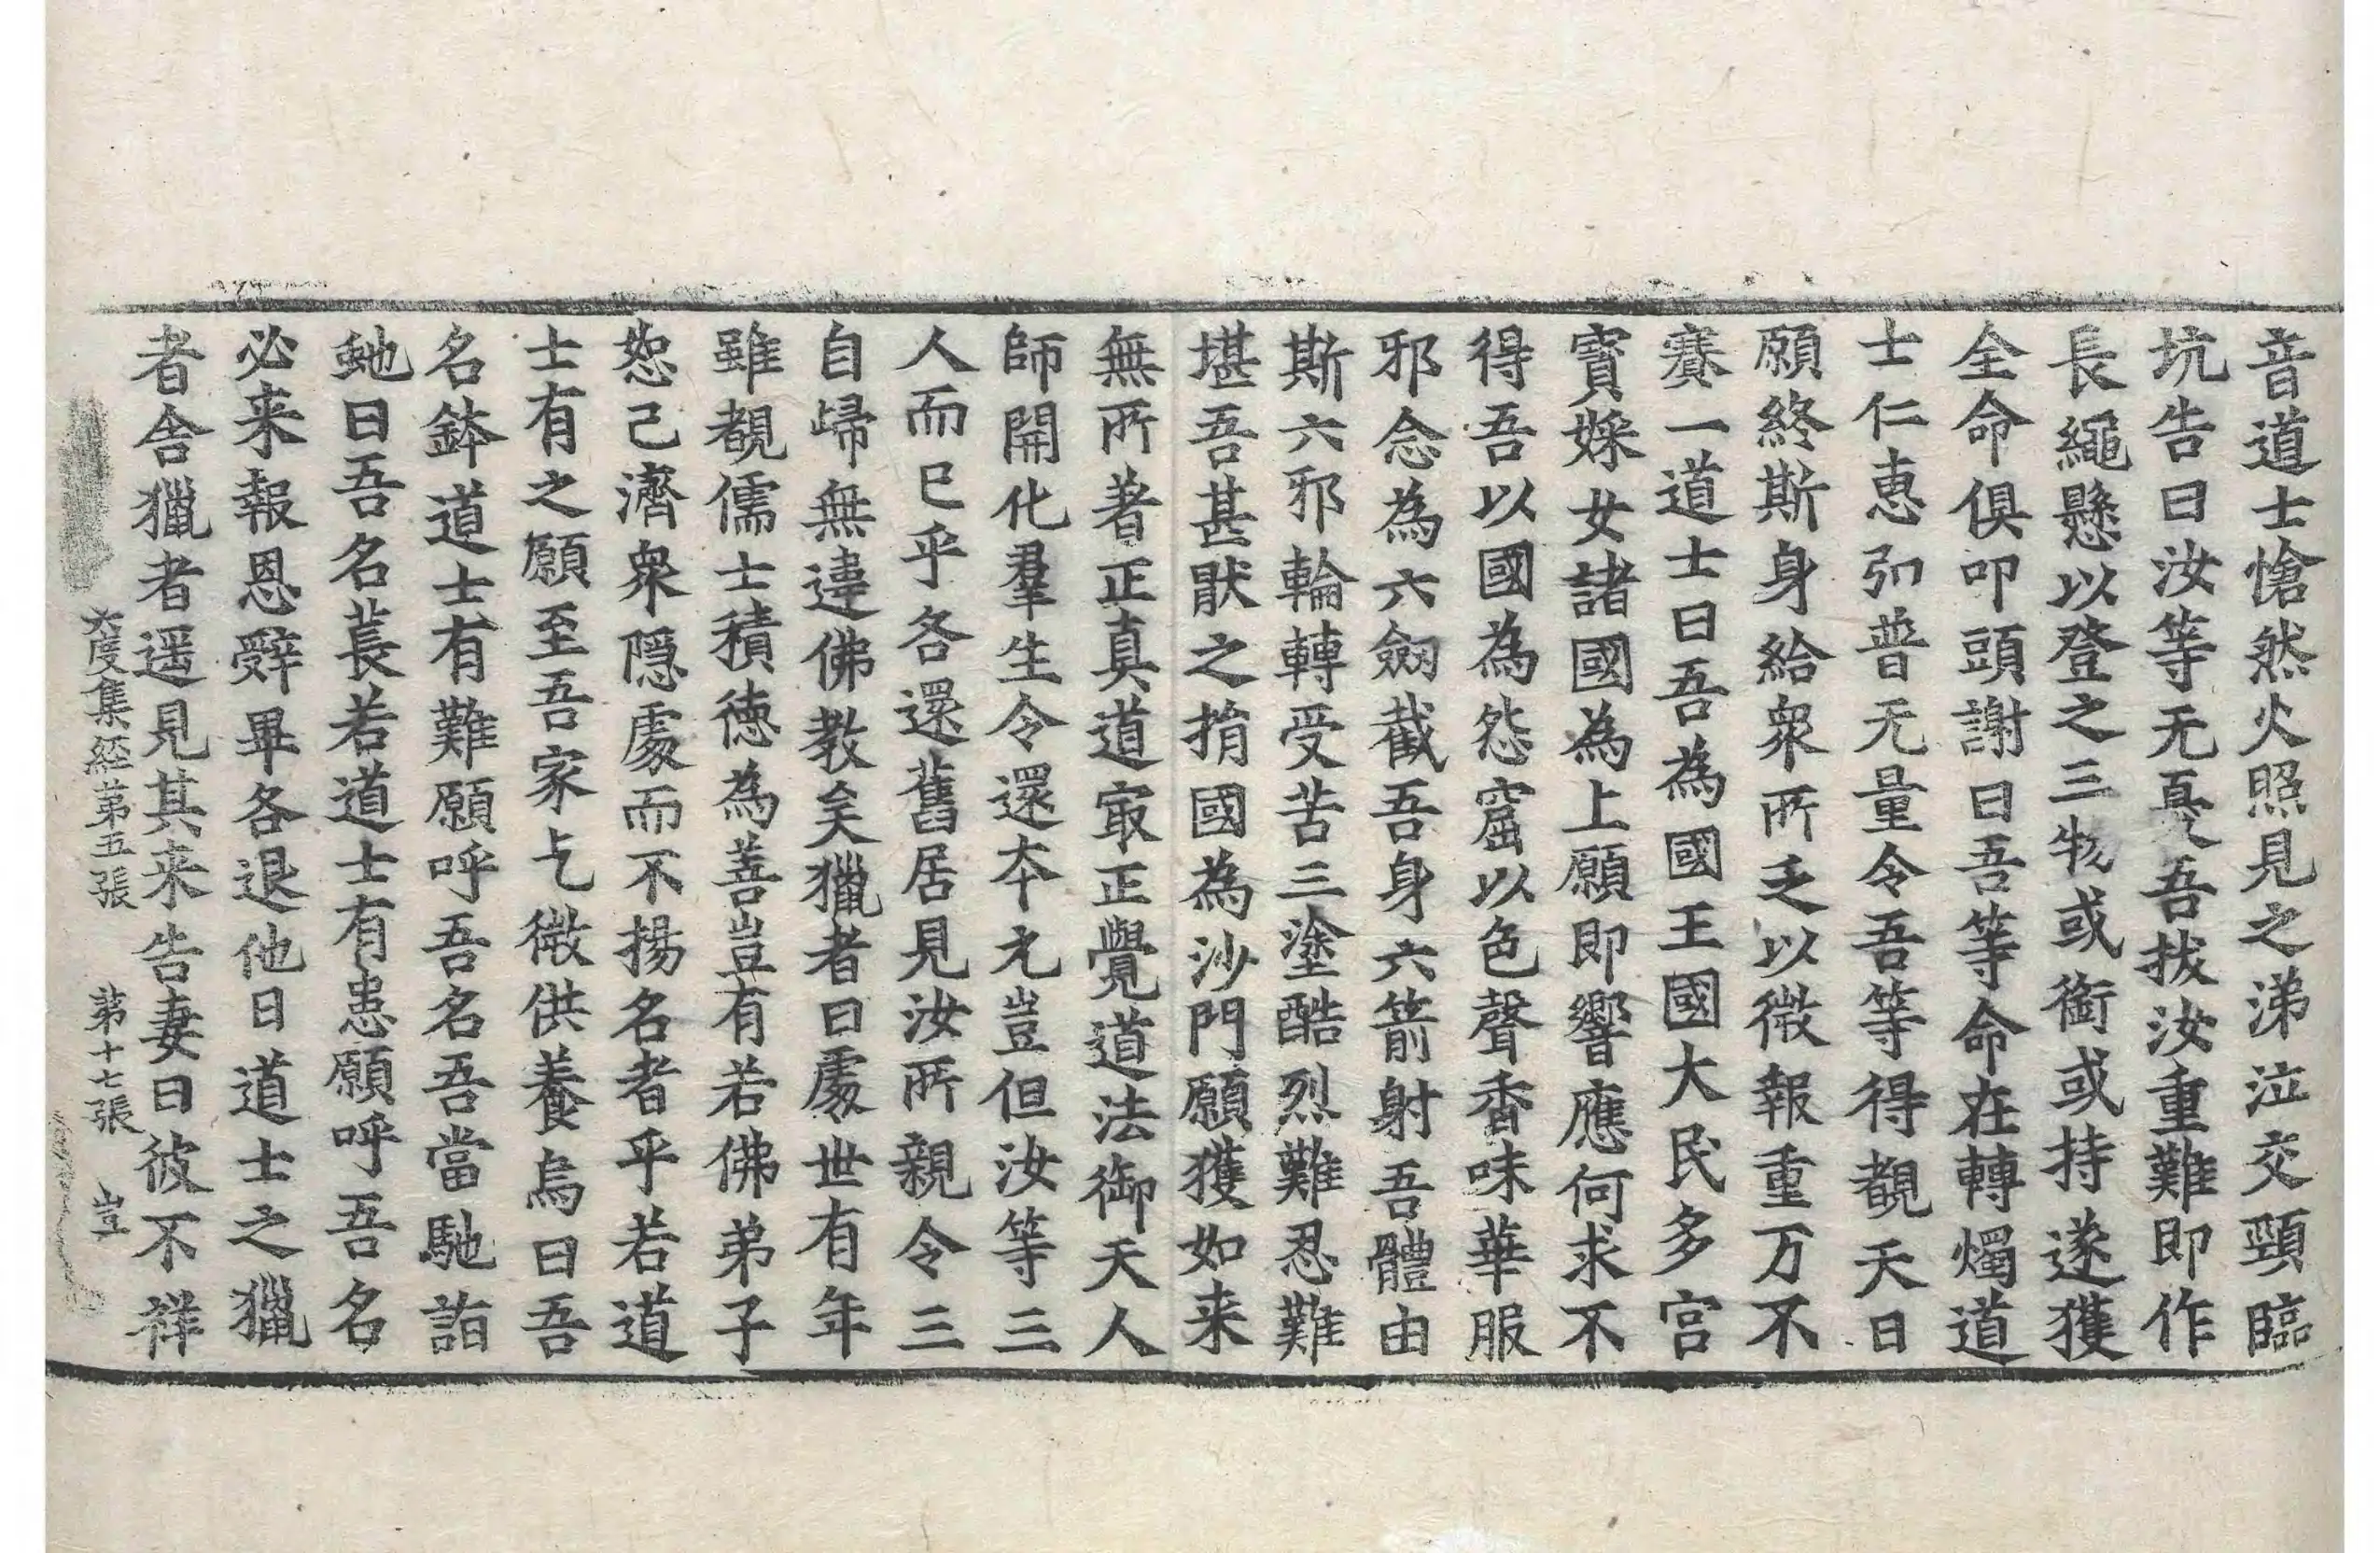 音道士愴然火照見之涕泣交頸臨
坑告曰汝等无憂吾拔汝重難即作
長繩懸以登之三物或銜或持遂獲
全命俱叩頭謝曰吾等命在轉燭道
士仁惠弘普无量令吾等得覩天日
願終斯身給衆所乏以微報重万不
賽一道士曰吾為國王國大民多宮
寶婇女諸國為上願即響應何求不
得吾以國為怨窟以色聲香味華服
邪念為六劒截吾身六箭射吾體由
斯六邪輪轉受苦三塗酷烈難忍難
堪吾甚猒之捐國為沙門願獲如来
無所著正真道冣正覺道法御天人
師開化羣生令還夲元豈但汝等三
人而已乎各還舊居見汝所親令三
自歸無違佛教矣獵者曰處世有年
雖覩儒士積徳為善豈有若佛弟子
恕己濟衆隠處而不揚名者乎若道
士有之願至吾家乞微供養烏曰吾
名鉢道士有難願呼吾名吾當馳詣
虵曰吾名萇若道士有患願呼吾名
必来報恩辭畢各退他日道士之獵
者舍獵者遥見其来告妻曰彼不祥
六度集経苐五張 苐十七張 豈